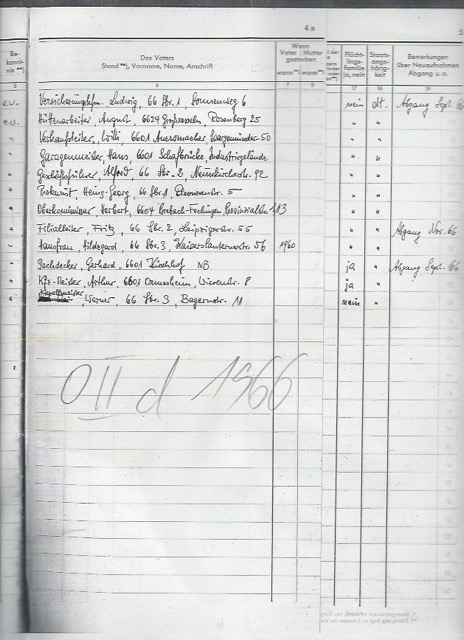 4a
5
Be-
kennt-
nis **)
Des Vaters
Stand **), Vorname, Name, Anschrift
Wenn
Vater Mutter
gestorben
wann **) wann **)
Flücht-
lings-
familie
ja, nein
Staats-
ange-
hörig-
keit
Bemerkungen
über Neuaufnahmen
Abgang u. a.
5 6 7 8 17 18 19
ev. Ludwig, 66 Sbr. 1 Sonnenweg 6 nein dt. Abgang Sept. 66
ev. Hüttenarbeiter August, 6624 Grossrosseln, Rosenberg 25 " "
" Verkaufsleiter, Willi, 6601 Auersmacher, Saargemünder 50 " "
" Garagenmeister, Hans 6601 Schafbrücke, Industriegelände " "
" Geschäftsführer, Alfred, 66 Sbr. 2, Neunkircherstr. 92 " "
" Prokurist Heinz-Georg, 66 Sbr. 1 5 " "
" Oberkommissar, Herbert, 6604 Brebach-Fechingen Provinzialstr. 113 " "
" Filialleiter, Fritz, 66 Sbr. 2, Leipzigerstr. 55 " " Abgang Nov. 66
" Hausfrau, Hildegard, 66 Sbr. 3, Kaiserslautererstr. 56 1960 " "
" Dachdecker, Gerhard, 6601 ja " Abgang Sept. 66
" Kfz-Meister, Arthur, 6601 Ormesheim, 8 ja "
" Werner, 66 Sbr. 3, Bayernstr. 11 nein "
O II d 1966